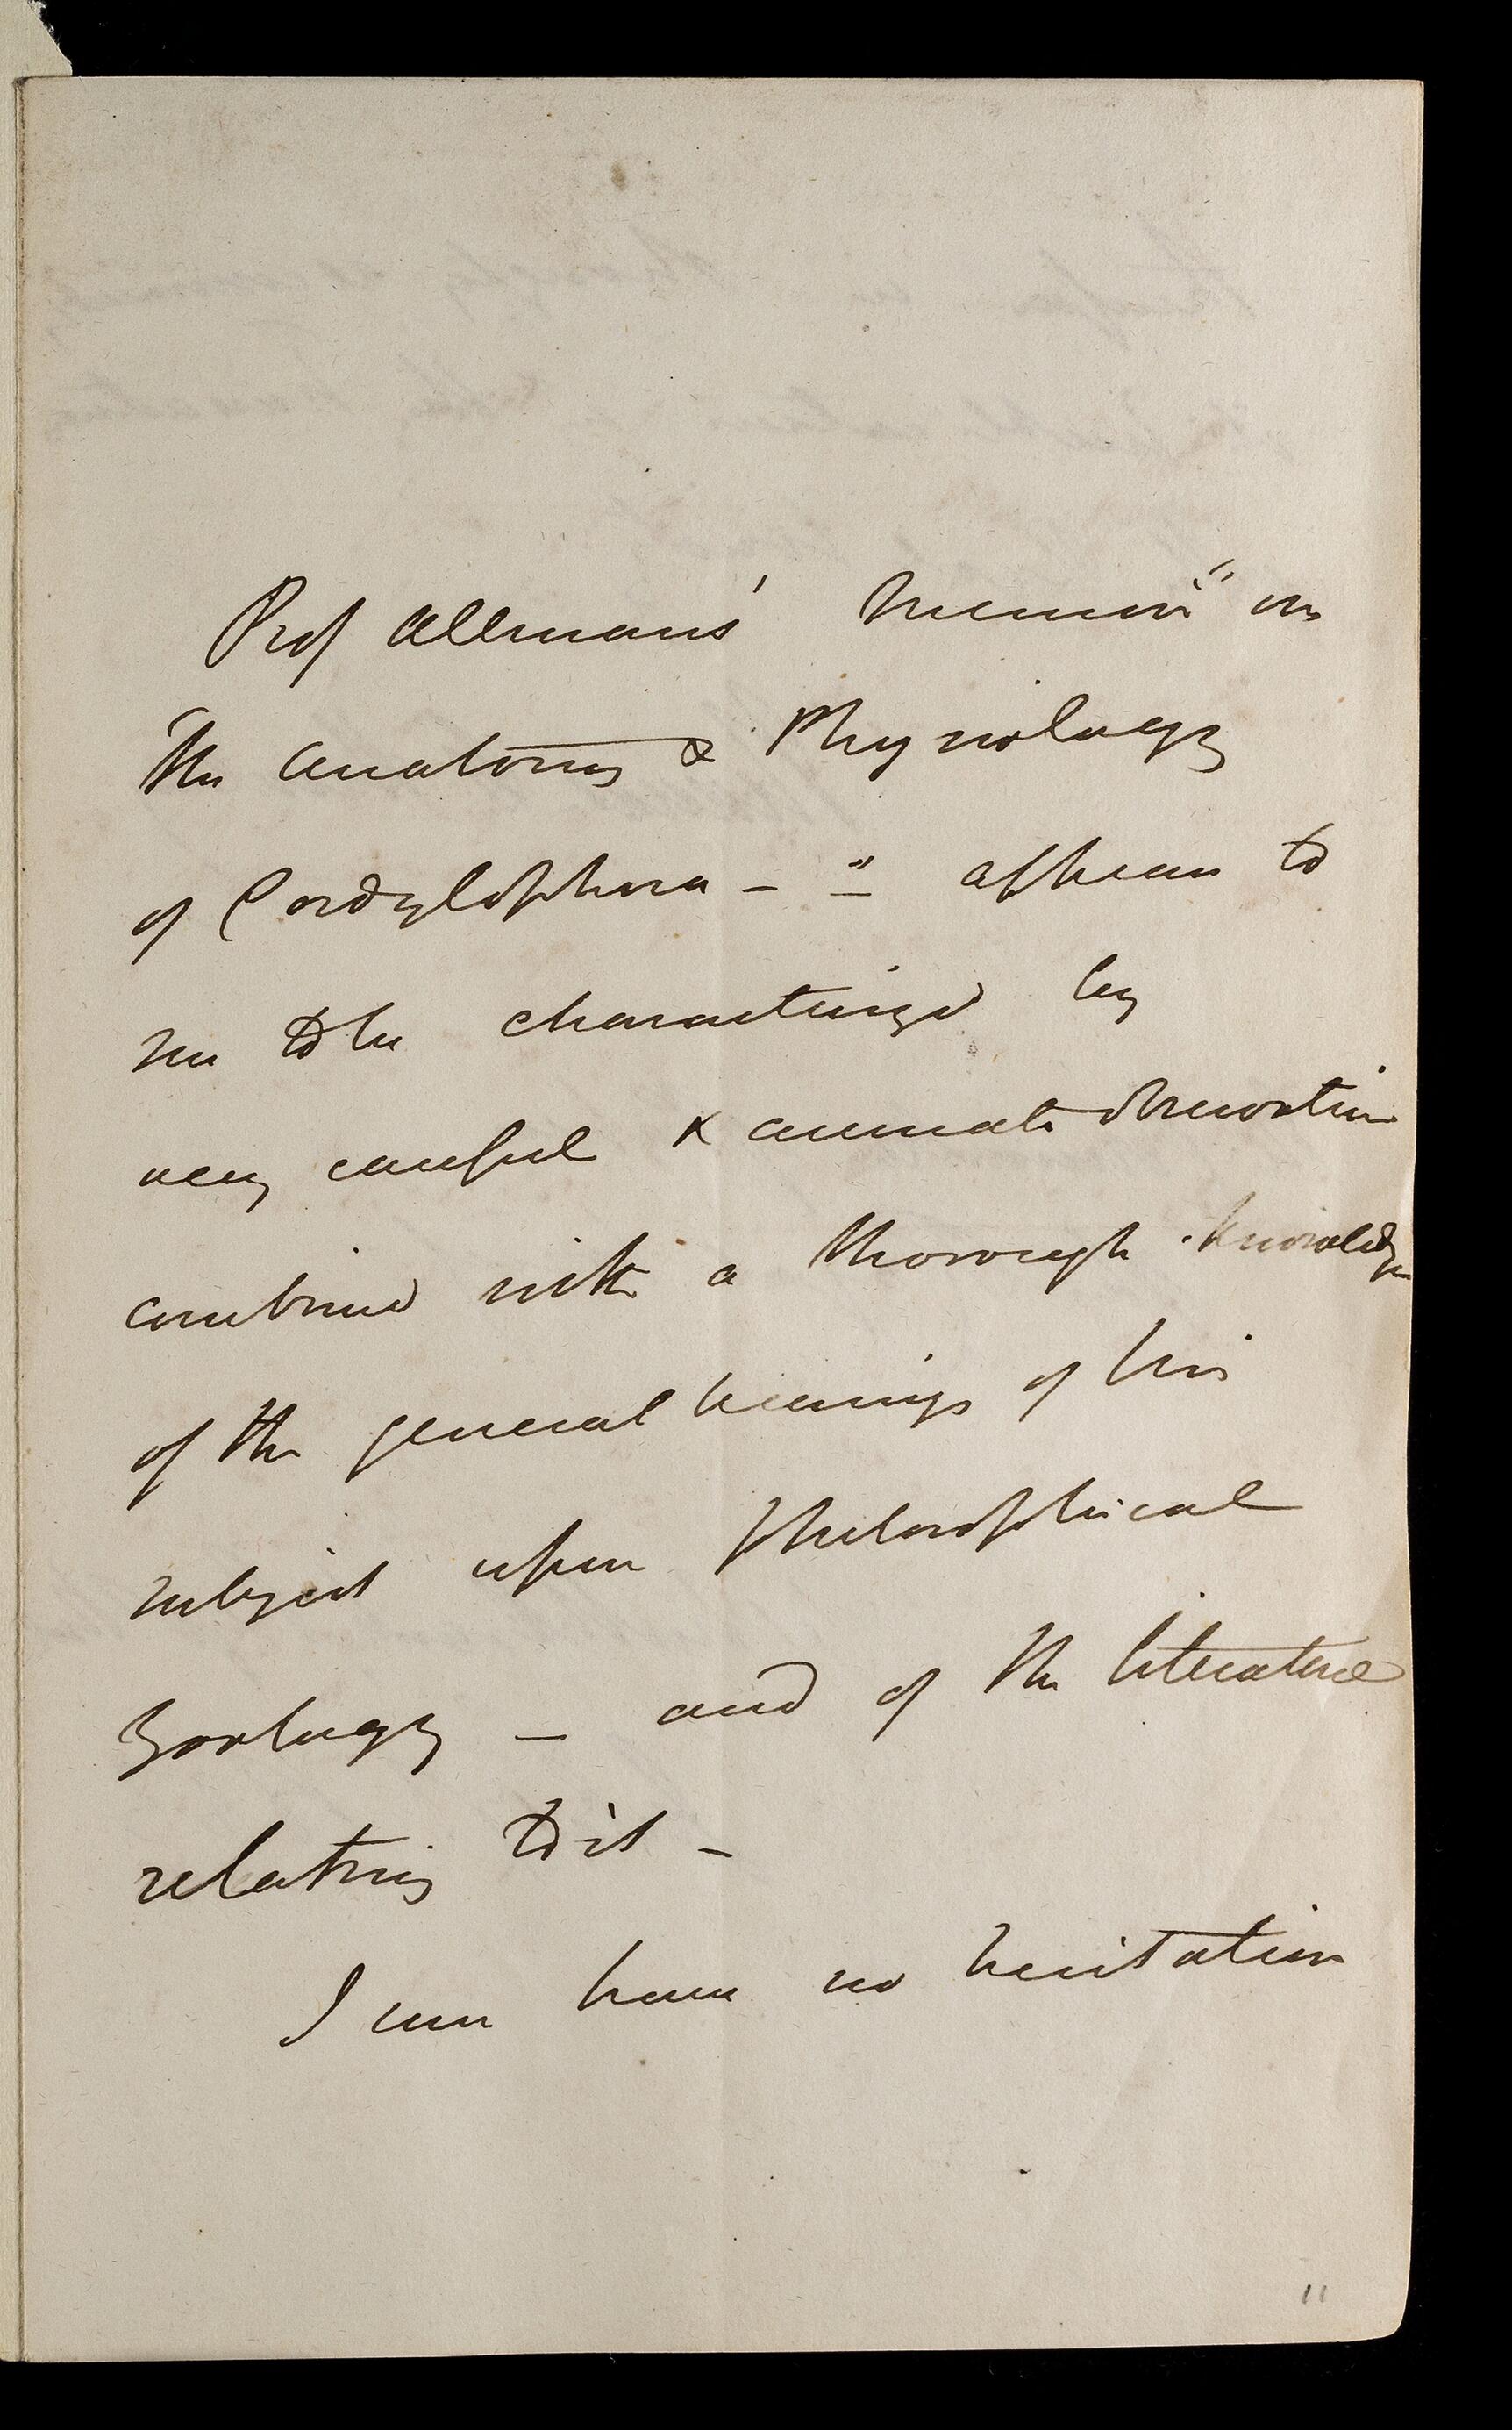 Prof Allman's Memoir "on
the Anatomy & Physiology
of Cordylophora - " appears to
me to be characterized by
very careful & accurate observation
combined with a thorough knowledge
of the general bearings of his
subject upon philosophical
Zoology - and of the literature
relating to it -
I can have no hesitation
11